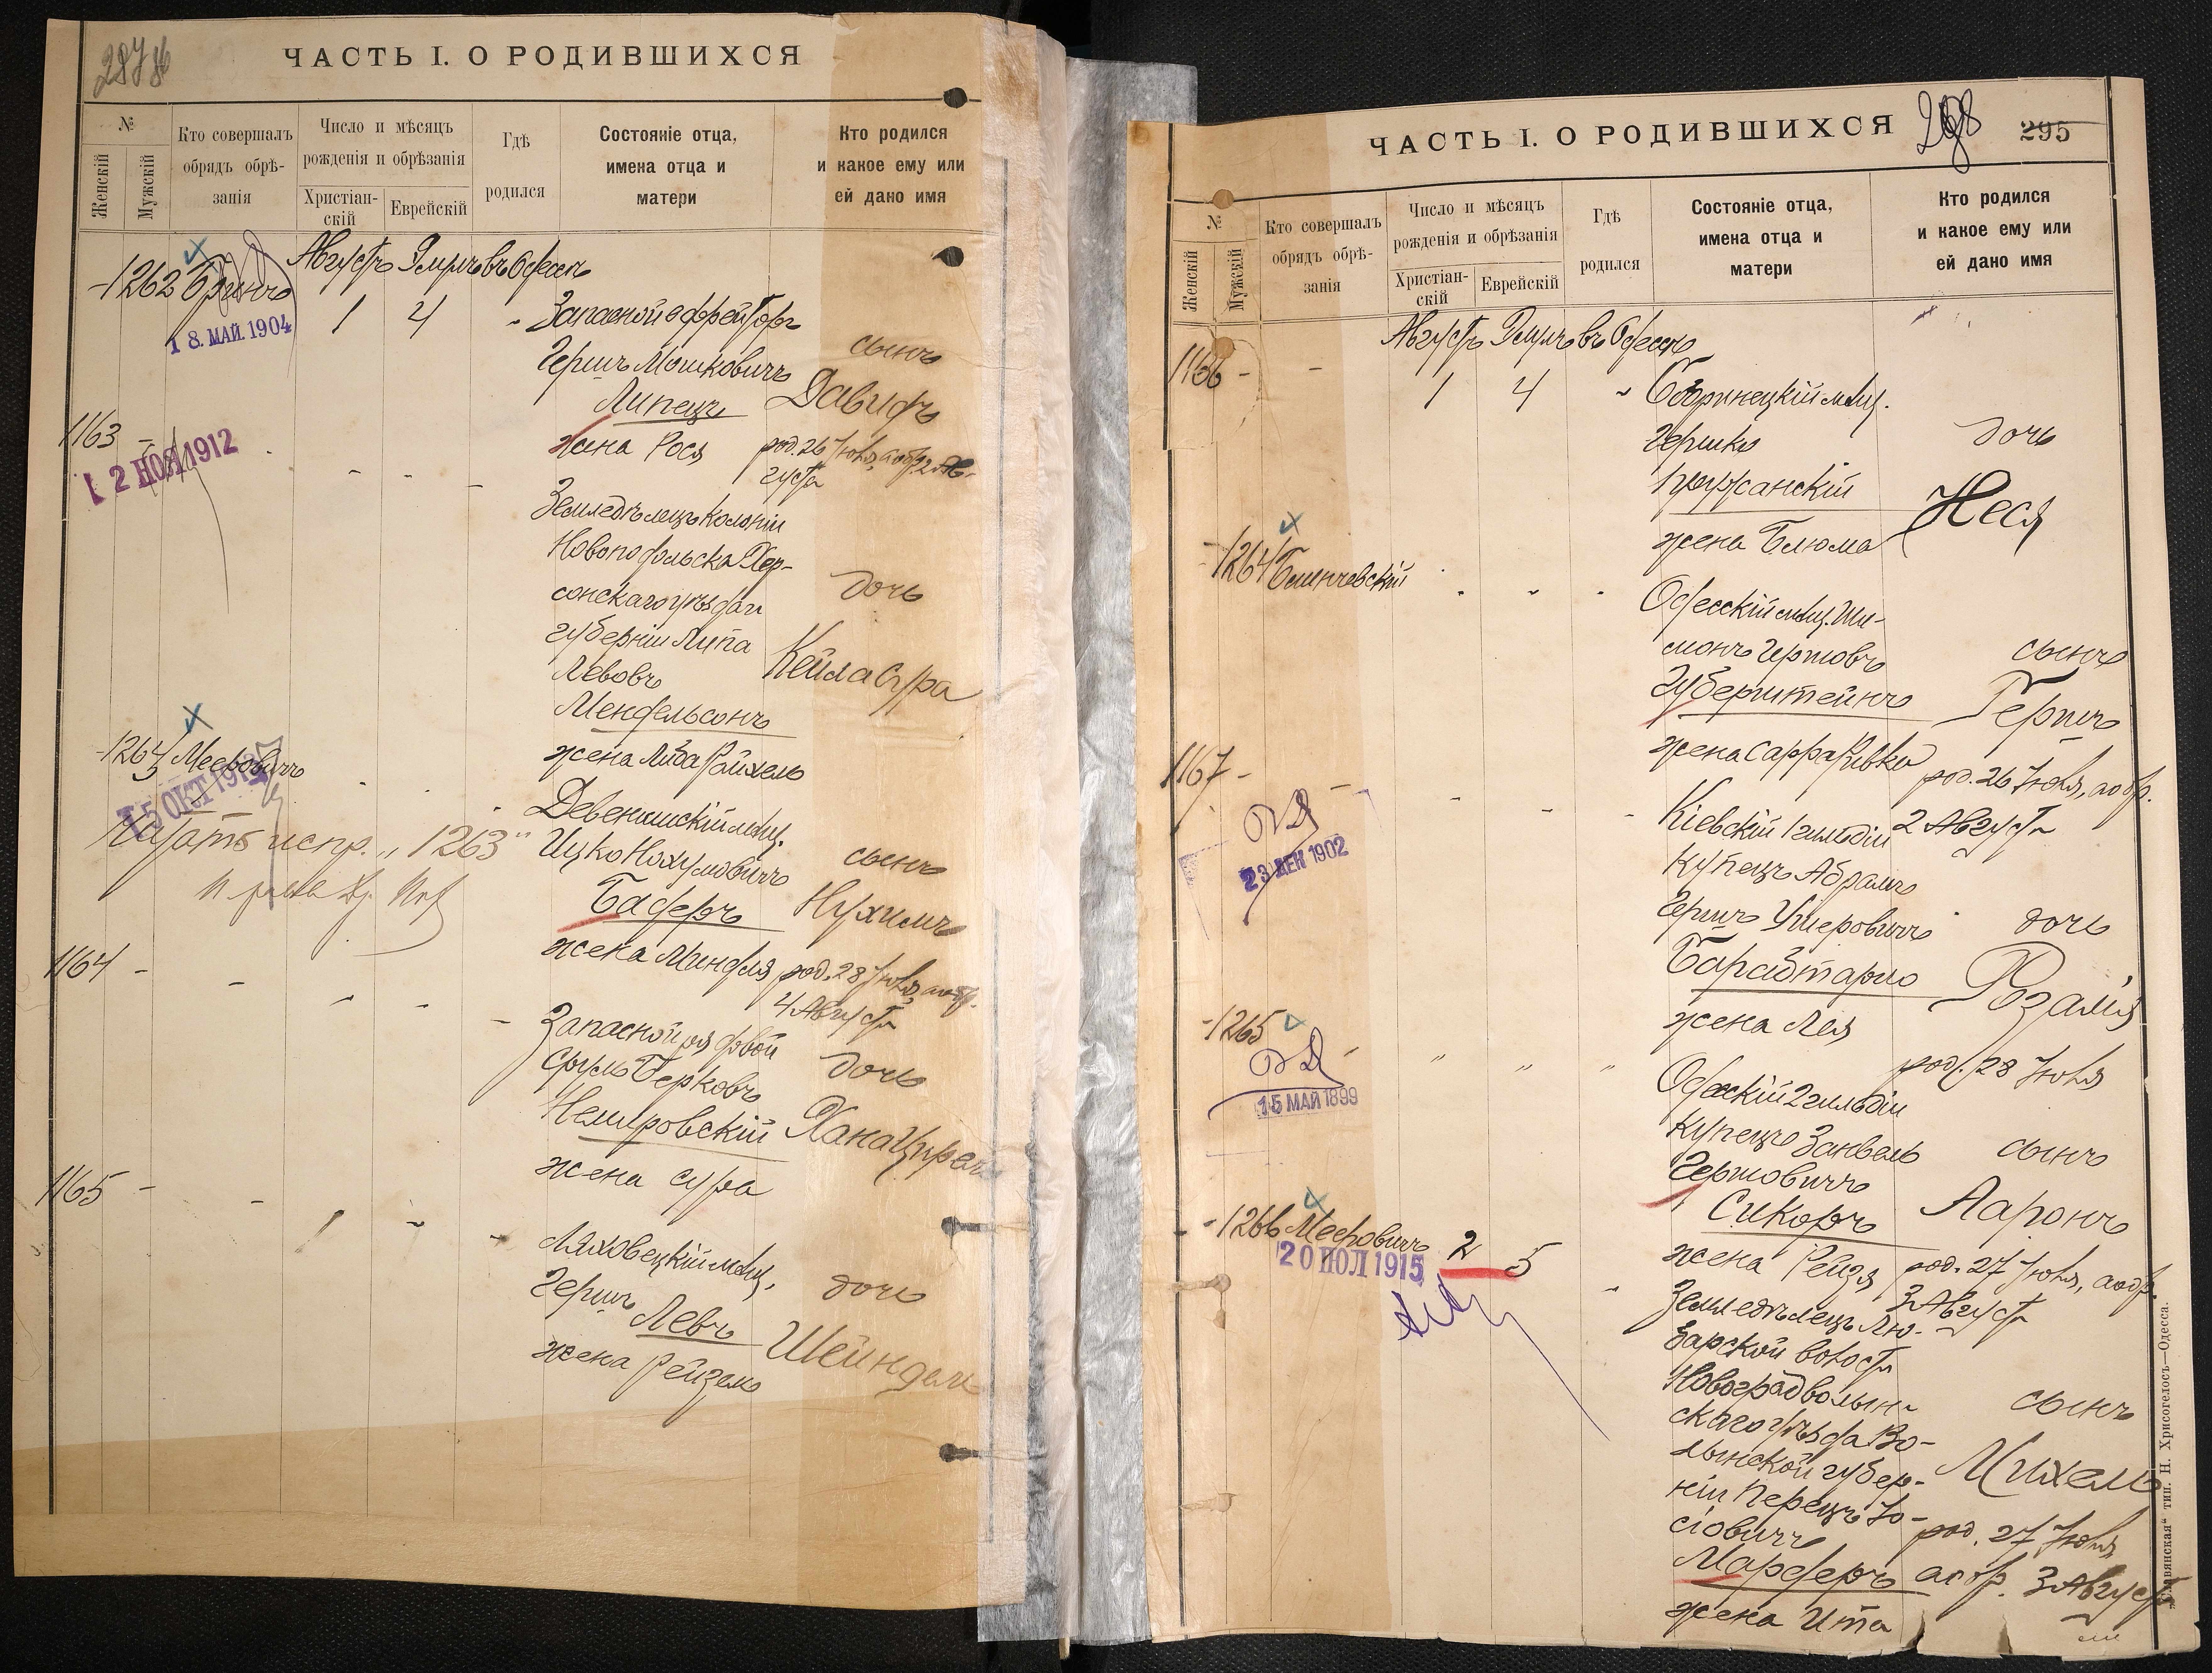 ЧАСТЬ I. О РОДИВШИХСЯ
№
Женскій
Мужскій
Кто совершалъ
обрядъ обрѣ-
занія
Число и мѣсяцъ
рожденія и обрѣзанія
Христіан-
скій
Еврейскій
Гдѣ
родился
Состояніе отца,
имена отца и
матери
Кто родился
и какое ему или
ей дано имя
Августъ въ Одессѣ
1262
18. МАЙ. 1904
1 4
Запасной ефрейторъ
Гершъ Мошковичъ
Липецъ
жена Рося
сынъ
Давидъ
род. 26 Іюля, а обр. 2 Ав-
густа
1163
12 НОЯ 1912
Земледѣлецъ колоніи
Новоподольска Хер-
сонскаго уѣзда и
губерніи Липа
Левовъ
Мендельсонъ
жена Либа Райхель
дочь
Кейла Сура
Мееровичъ
15 ОКТ
Девенишскій мѣщ.
Ицко Нохумовичъ
Бадеръ
жена Миндля
сынъ
Нухимъ
род. 28 Іюля, а обр.
4 Августа
испр. „1263"
1164
Запасной рядовой
Сруль Берковъ
Немировскій
жена Сура
дочь
Хана
1165
Ляховецкій мѣщ.
Гершъ Левъ
жена Рейзель
дочь
Шейндель
ЧАСТЬ I. О РОДИВШИХСЯ
298
295
№
Женскій
Мужскій
Кто совершалъ
обрядъ обрѣ-
занія
Число и мѣсяцъ
рожденія и обрѣзанія
Христіан-
скій
Еврейскій
Гдѣ
родился
Состояніе отца,
имена отца и
матери
Кто родился
и какое ему или
ей дано имя
Августъ въ Одессѣ
1166
1 4
Бобринецкій мѣщ.
Гершко
жена Блюма
дочь
Неся
1264
Одесскій мѣщ. Ши-
монъ Гершовъ
Губерштейнъ
жена Сарра Ривка
сынъ
Гершъ
род. 26 Іюля, а обр.
2 Августа
1167
23 ДЕК 1902
Кіевскій 1 гильдіи
купецъ Абрамъ
Гершъ Ушеровичъ
жена Лея
дочь
Розалія
род. 28 Іюля
1265
15 МАЙ 1899
Одесскій 2 гильдіи
купецъ Занвель
Гершовичъ
Сикоръ
жена Рейзя
сынъ
Ааронъ
род. 27 Іюля, а обр.
3 Августа
1266 Мееровичъ
2 5
20 ІЮЛ 1915
Земледѣлецъ Лю-
барской волости
Новоградволын-
скаго уѣзда Во-
лынской губер-
ніи Перецъ Іо-
сіовичъ
Мардеръ
жена Ита
сынъ
Михель
род. 27 Іюля
а обр. 3 Августа
„Славянская" тип. Н. Хрисогелосъ—Одесса.